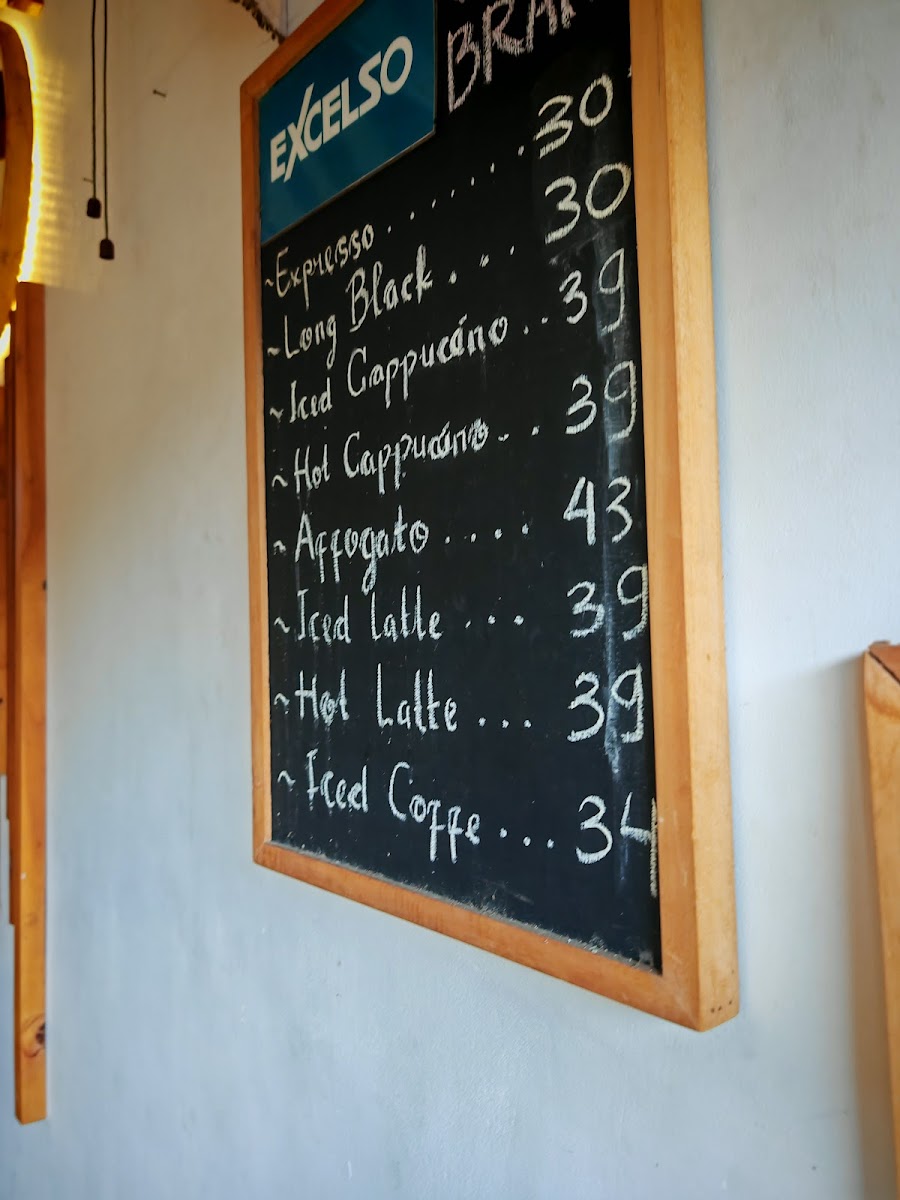 EXCELSO
~Expresso........30
~Long Black....30
~Iced Cappucino..39
~Hot Cappucino..39
~Affogato....43
~Iced Latte...39
~Hot Latte...39
~Iced Coffe...34